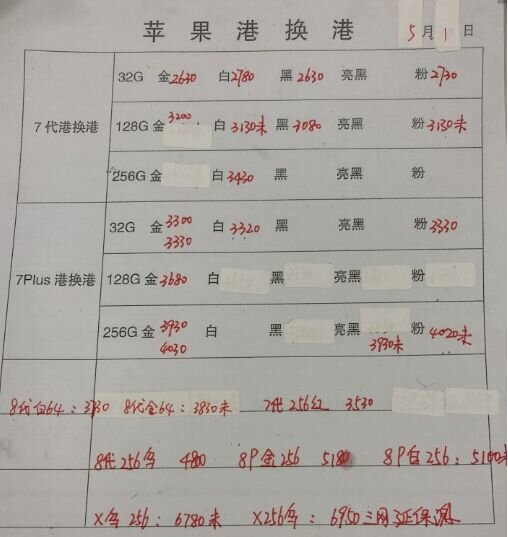 苹果港换港 5月1日
32G 金2630 白2780 黑2630 亮黑 粉2730
7代港换港 128G金3200 白3130未 黑3080 亮黑 粉3130未
256G金 白3430 黑 亮黑 粉
32G 金3300 3330 白3320 黑 亮黑 粉3330
7Plus港换港 128G金3680 白 黑 亮黑 粉
256G金3930 4030 白 黑 亮黑3930未 粉4020未
8代白64：3730 8代金64：3830未 7代256红 3530
8代256 4800 8P金256 8P白256：5100未
X 256：6780未 X256：6950三网